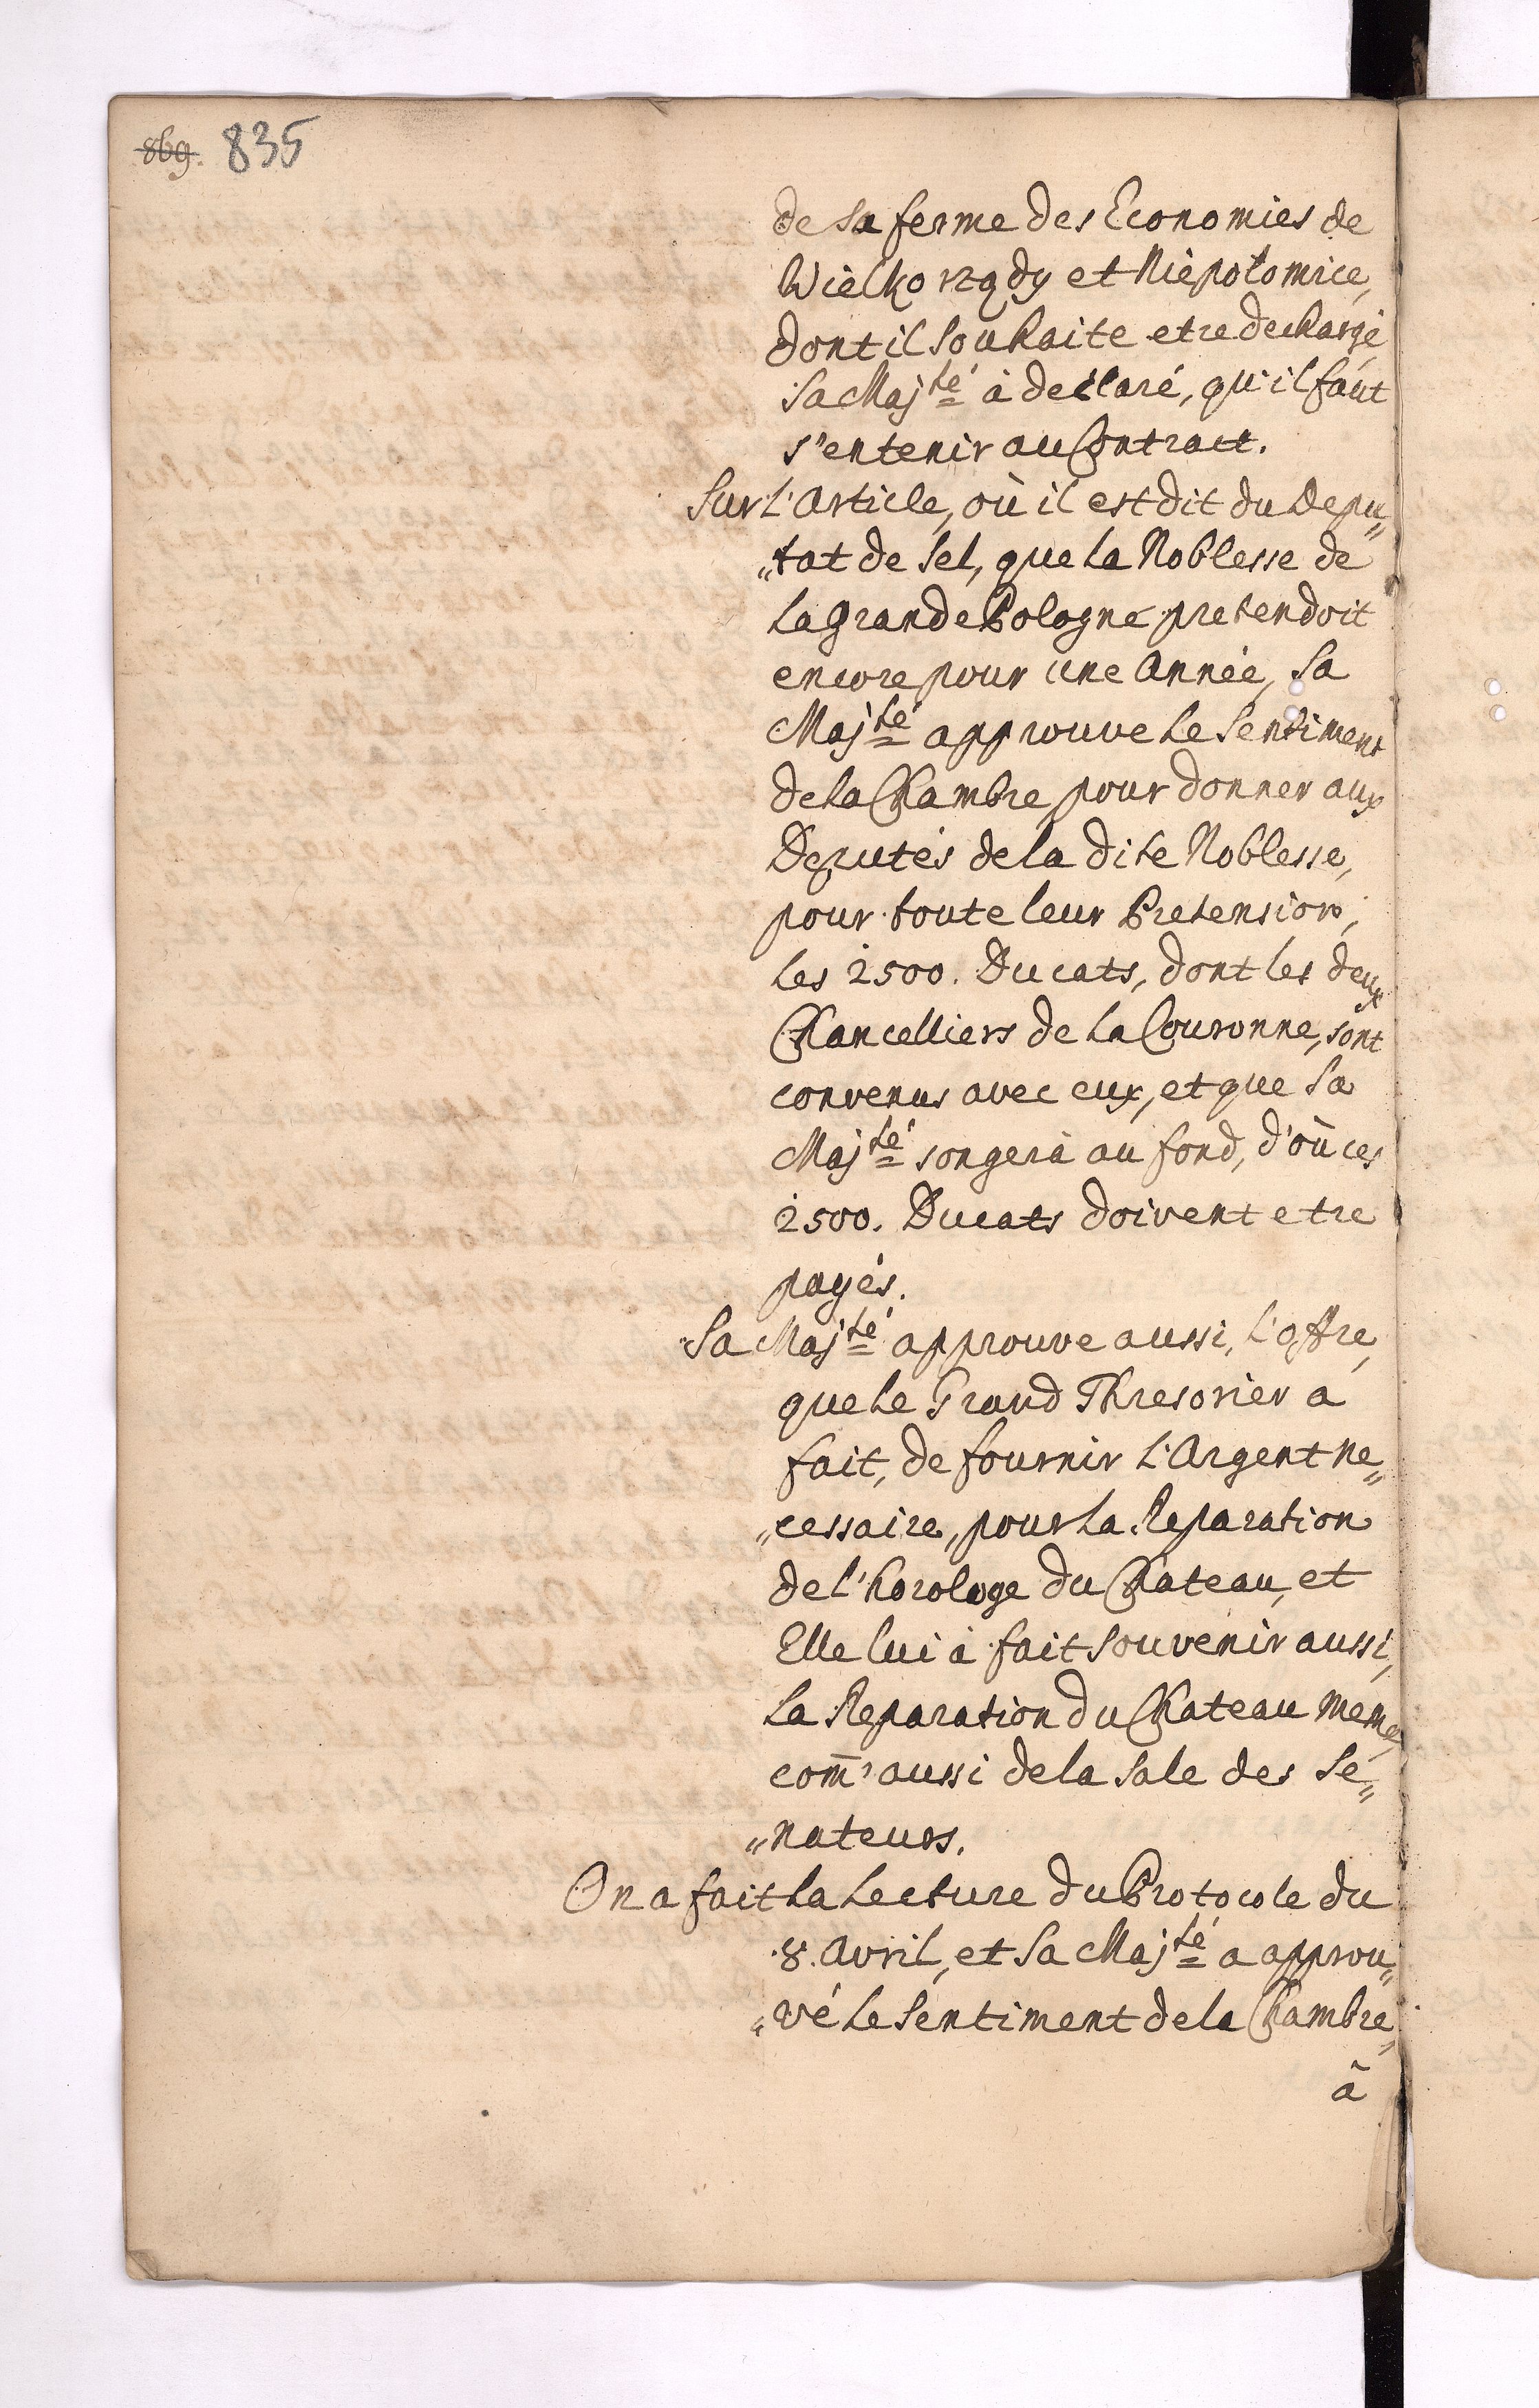 869. 835
de sa ferme des Economies de
Wielkorządy et Niepołomice,
dont il souhaite etre dechargé,
Sa Maj.té à declaré, qu'il faut
s'en tenir au Contract.
Sur l'Article, où il est dit du Depu„
„tat de sel, que la Noblesse de
la Grande Pologne pretendoit
encore pour une Année, Sa
Maj.té approuve le Sentiment
de la Chambre, pour donner aux
Deputés de la dite Noblesse,
pour toute leur Pretension,
les 2500. Ducats, dont les deux
Chancelliers de la Couronne, sont
convenus avec eux, et que Sa
Maj.té songerà au fond, d'où ces
2500. Ducats doivent etre
payés.
Sa Maj.té approuve aussi, l'offre,
que le Grand Thresorier a
fait, de fournir l'Argent ne„
„cessaire, pour la Reparation
de l'horologe du Chateau, et
Elle lui à fait souvenir aussi,
la Reparation du Chateau meme,
com̄e aussi de la Sale des Sé„
„nateurs.
On a fait la Lecture du Protocole du
8. Avril, et Sa Maj.té a approu„
„vé le Sentiment de la Chambre,
à